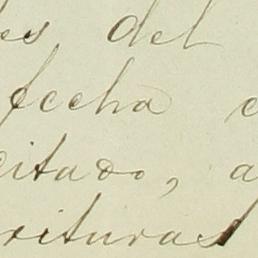 es del
fecha
citado, a
rituras